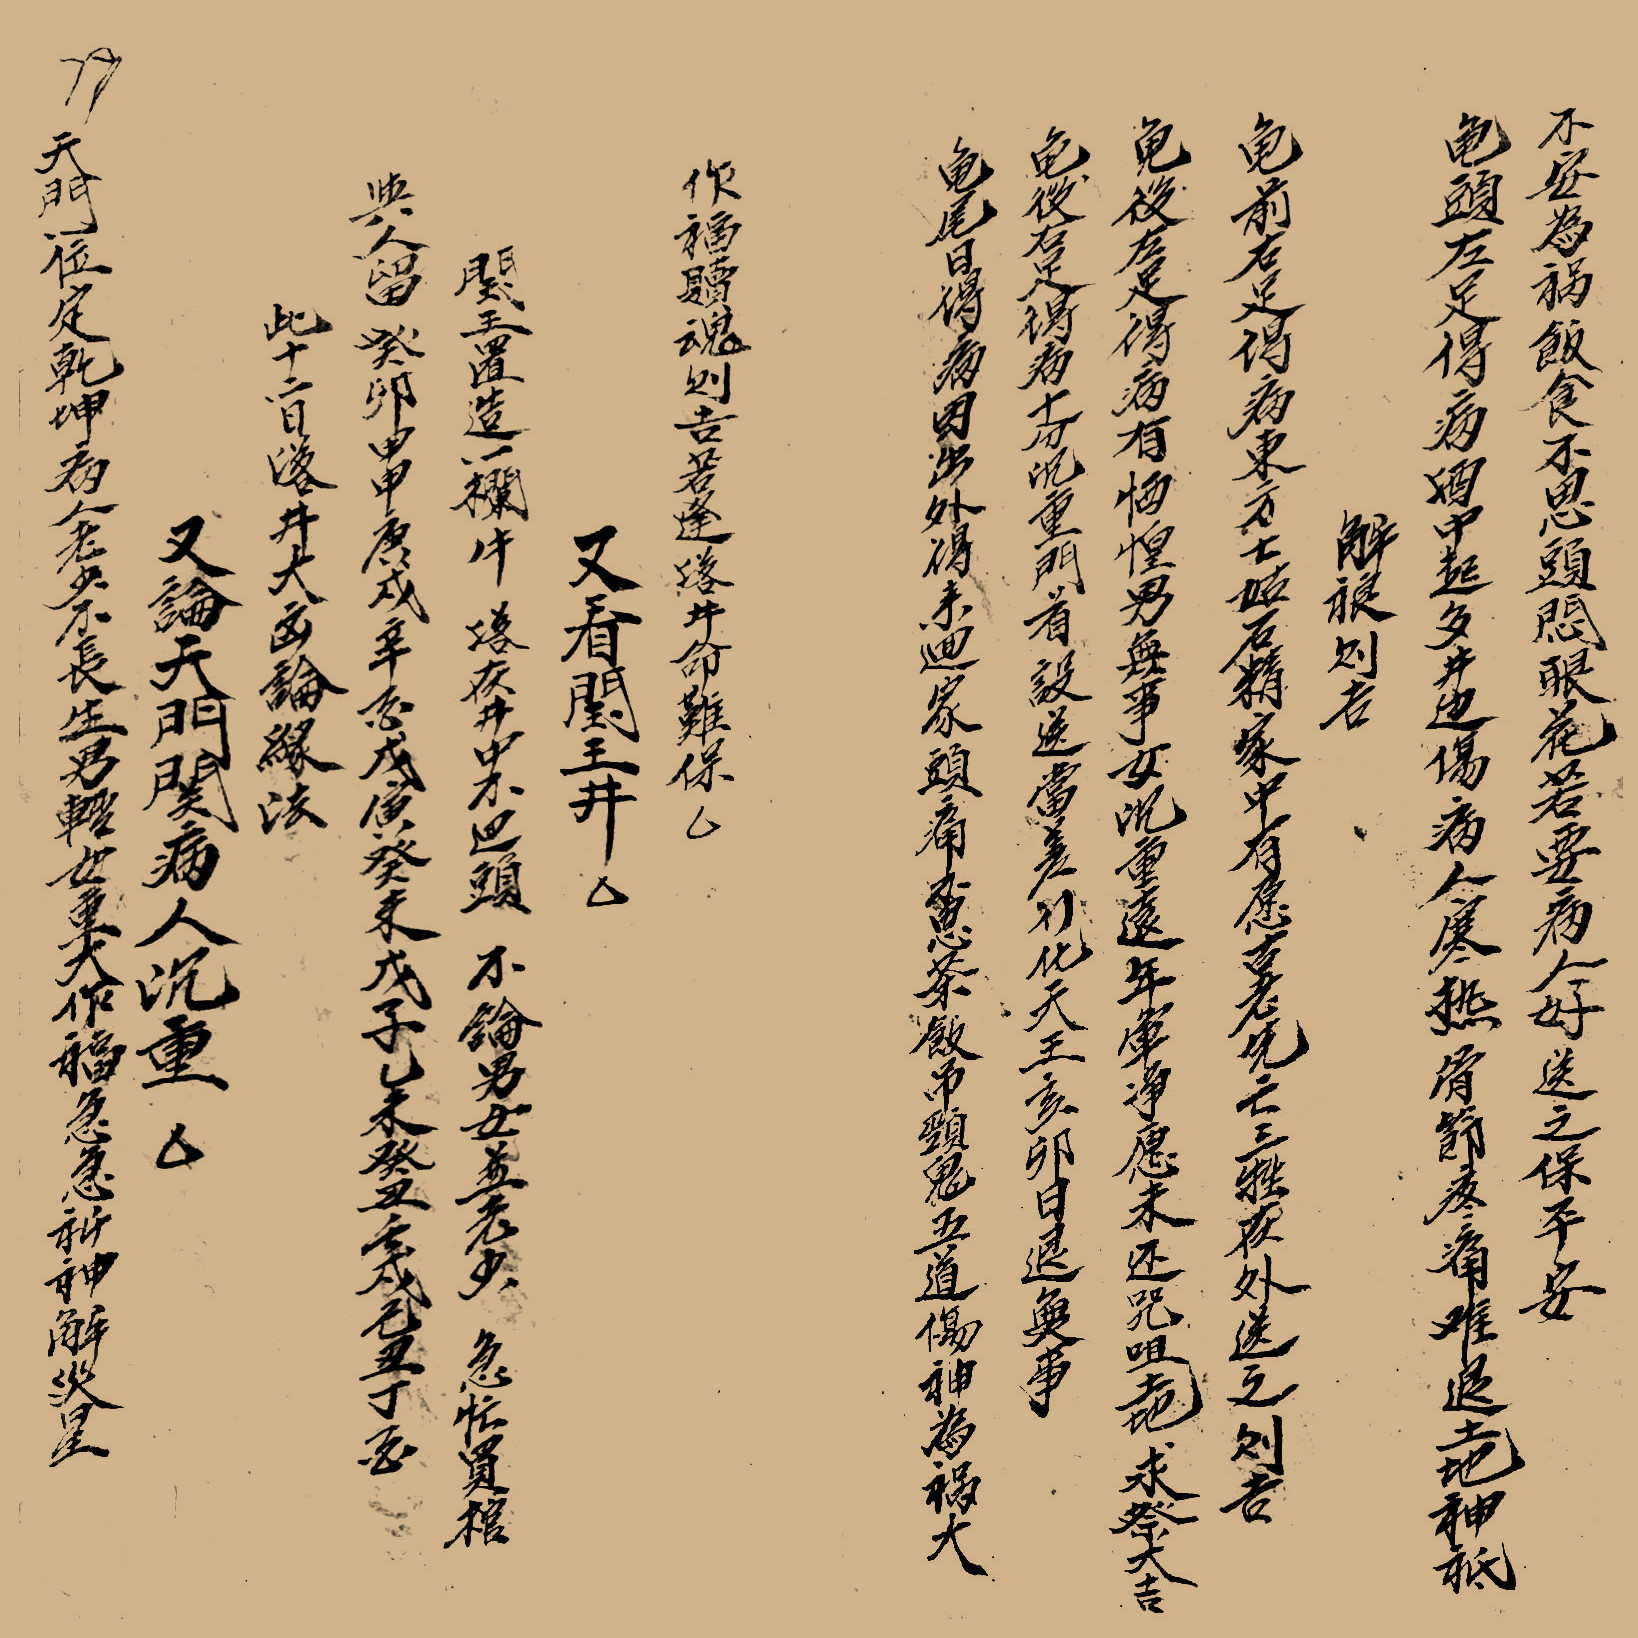 不安為祸飯食不思頭悶眼花若要病人好送之保平安
龟頭左足得病酒中起多井边傷病人寒热骨節疼痛难退土地神祗
解禳则吉
龟前右足得病東方七姑石精家中有愿古老先亡三牲夜外送之则吉
龟後左足得病有恓惶男無事女沉重遠年軍净愿未还咒咀土地求祭大吉
龟後右足得病十分沉重門首設送當差引化天王亥卯日退無事
龟尾日得病因出外得未迴家頭痛思茶飯吊頸鬼五道傷神為祸大
作福贖魂则吉若逢落井命難保
又看閻王井
閻王置造八欄井 落在井中不回頭 不論男女並老少 急忙買棺
與人留 癸卯甲申庚戌辛酉戊寅癸未戊子乙未癸丑戊己丑丁酉
此十二日落井大凶論緣法
又論天門関病人沉重
天門位定乾坤病人老少不長生男輕女重大作福急急祈神解災星